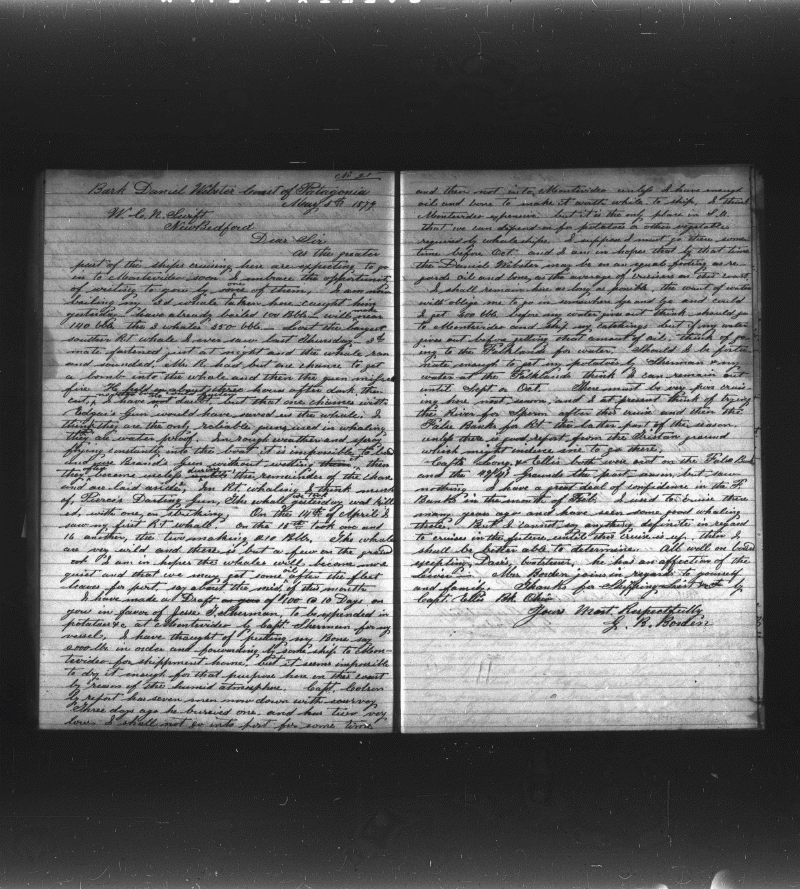 No 21
Bark Daniel Webster Coast of Patagonia
May 5th 1879
W. C. N. Swift
New Bedford
Dear Sir
As the greater
part of the ships cruising here are expecting to go
in to Montevideo soon I embrace the opportunity
of writing to you by one of them. I am now
boiling my 3d whale taken here caught him
yesterday have already boiled 100 Bbls will make near
140 bbls the 3 whales 350 bbls. Lost the largest
souther Rt whale I ever saw last Thursday. 2d
mate fastened just at night and the whale ran
and sounded. Mr. R had but one chance to get
a bomb into the whale and then the gun missed
fire. He held on about three hours after dark then
cut, I have but that one chance with
Edgar's Gun would have saved us the whale. I
think they are the only reliable guns used in whaling
they are water proof. In rough weather and spray
flying constantly into the boat it is impossible to load
and use Brand's gun without wetting them then
they become useless the remainder of the chase
and are laid aside. In Rt whaling I think much
of Pierce's Darting Gun. The whale yesterday was kill
ed, with one, in striking. On the 14th of April I
saw my first Rt whale on the 15th took one and
16 another, the two making 210 Bbls. The whales
are very wild and there is but a few on the ground
but I am in hopes the whales will become more
quiet and that we may get some oil after the fleet
leaves for port, say about the mid. of this month
I have made a Draft of $100 @ 10 Days on
you in favor of Jesse T. Sherman, to be expended in
potatoes &c at Montevideo by Capt. Sherman for my
vessel. I have thought of putting my Bone say
2000 lbs in order and forwarding by some ship to Mon-
tevideo for shippment home. but it seems impossible
to dry it enough for that purpose here on this coast
by reason of the humid atmosphere. Capt.
by report has seven men now down with scurvy
Three days ago he burried one. and has two very
low. I shall not go into port for some time
and then not into Montevideo unless I have enough
oil and bone to make it worth while to ship. I think
Montevideo expensive but it is the only place in S.A.
that we can depend on for potatoes & other vegetables
required by whaleships. I suppose I must go there some
time before Oct. and I am in hopes that by that time
the Daniel Webster may be on an equal footing as re
gards oil and bone, as the average of vessels on this coast,
I shall remain here as long as possible. the want of water
will oblige me to go in somewhere by and by and could
I get 200 bbls before my water gives out think should go
to Montevideo and ship my takings but if my water
gives out before getting that amount of oil, think of go
ing to the Falklands for water. Should I be fortu-
nate enough to get potatoes by Sherman and my
water at the Falklands think I can remain out
until Sept or Oct. There must be very poor cruis
ing here next season, and I at present think of trying
the River for Sperm after this cruise and then the
False Banks for Rt the latter part of the season.
unless there is good report from the Tristan ground
which might induce me to go there,
Capts & Ellis both were out on the False Bank
and the grounds the past season but saw
nothing. I have a great deal of confidence in the F.
Bank in the month of Feb. I used to cruise there
many years ago and have seen some good whaling
there. But I cannot say anything definite in regard
to cruises in the future until this cruise is up. then I
shall be better able to determine. All well on board
excepting Davis, he has an affection of the
liver. Mrs Boden joins in regards to yourself
and family. Thanks for by
Capt. Ellis Bk Ohio
Yours Most Respectfully